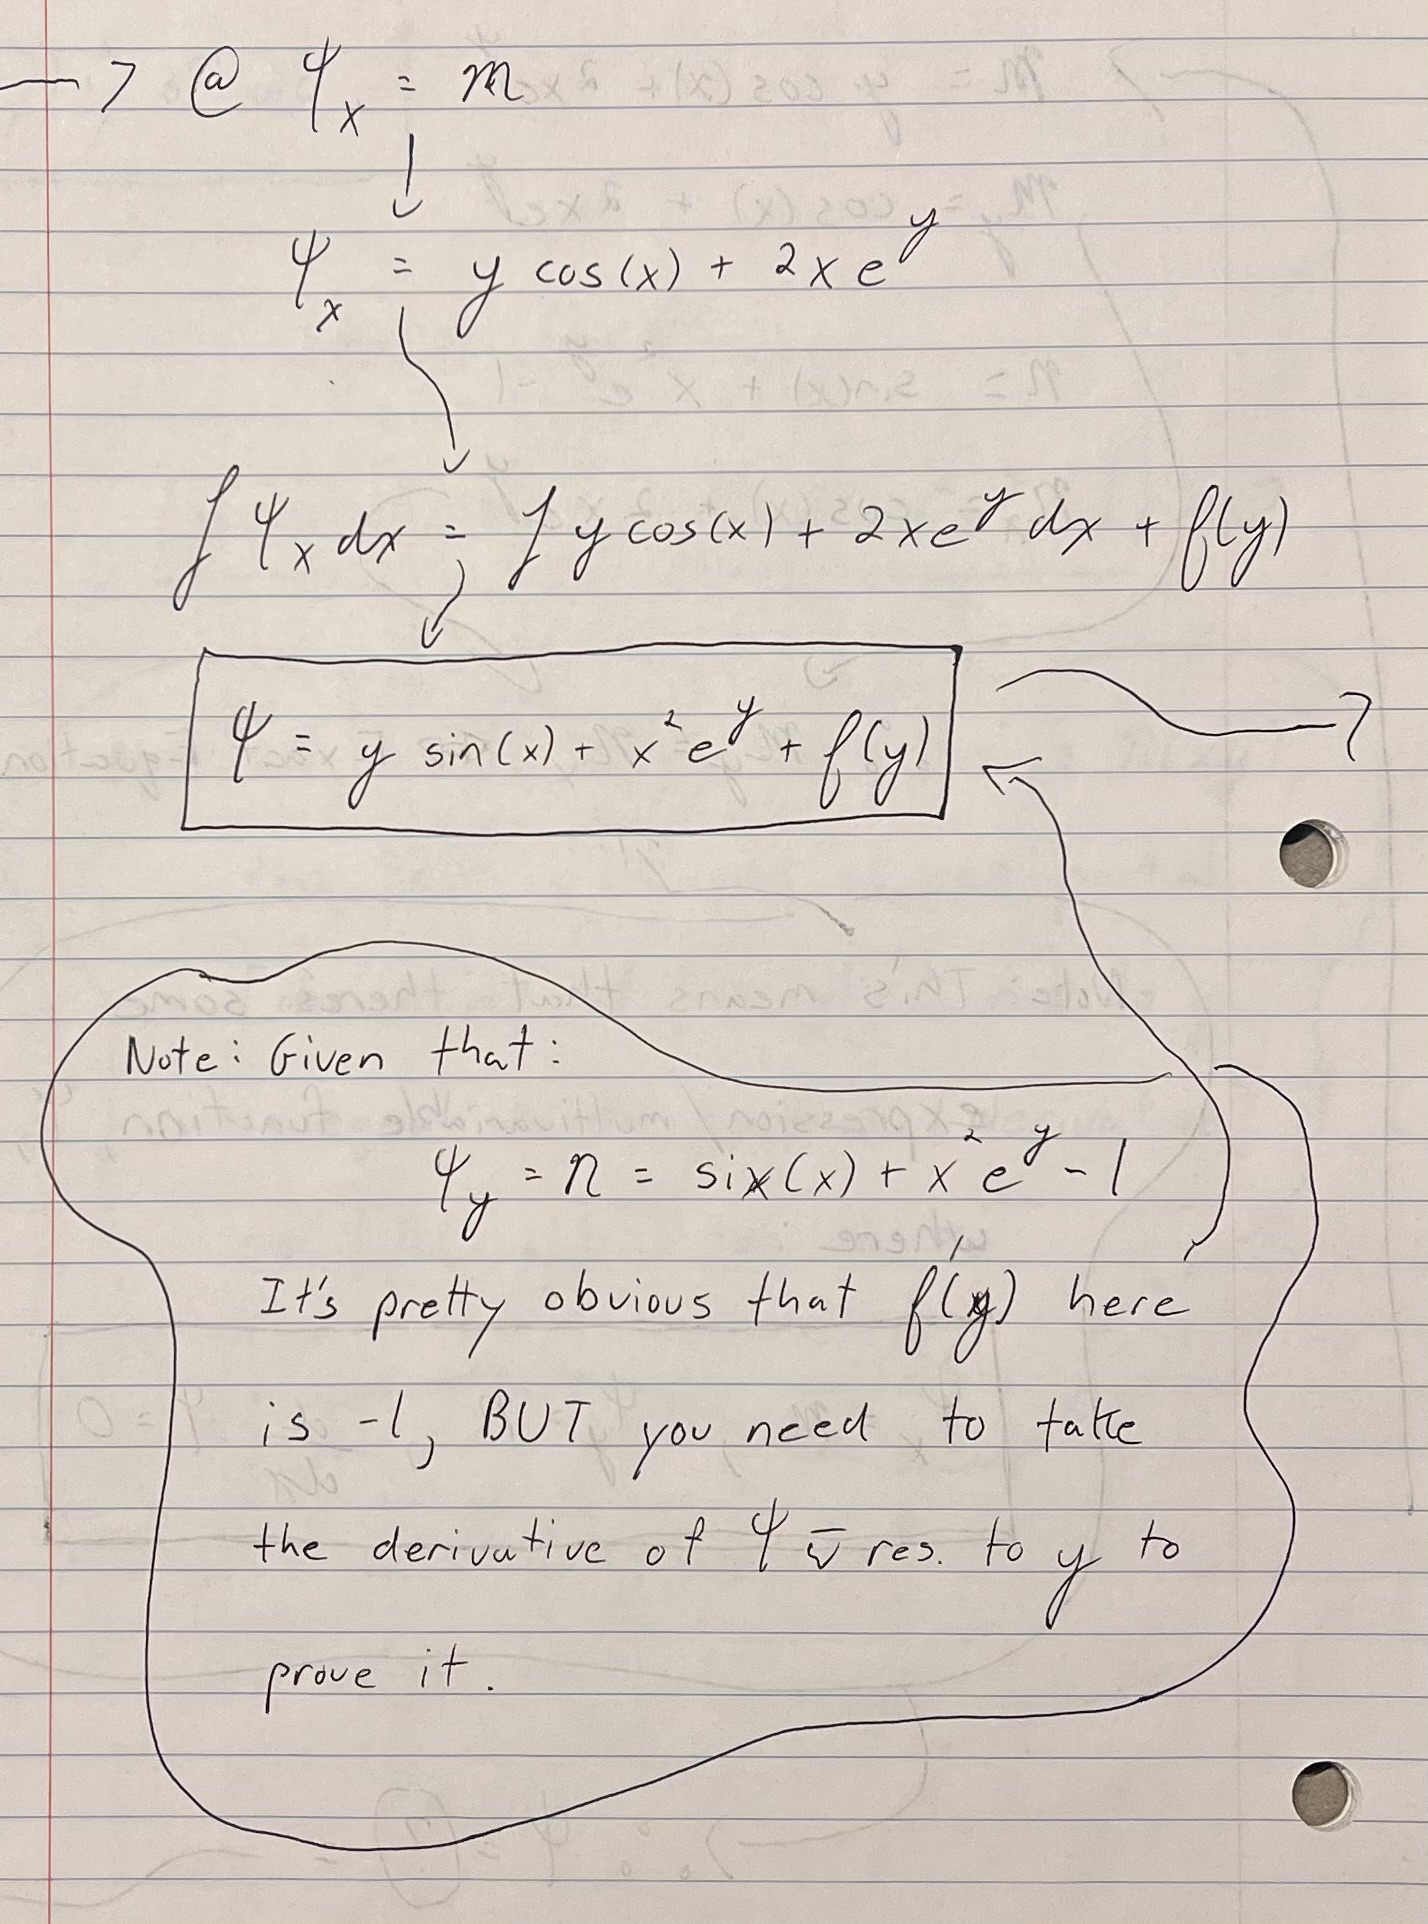 —> @ ψₓ = m
ψₓ = y cos(x) + 2xe^y
∫ ψₓ dx = ∫ y cos(x) + 2xe^y dx + f(y)
ψ = y sin(x) + x²e^y + f(y)
Note: Given that:
ψ_y = n = six(x) + x²e^y - 1
It's pretty obvious that f'(y) here
is -1, BUT you need to take
the derivative of ψ w̄ res. to y to
prove it.